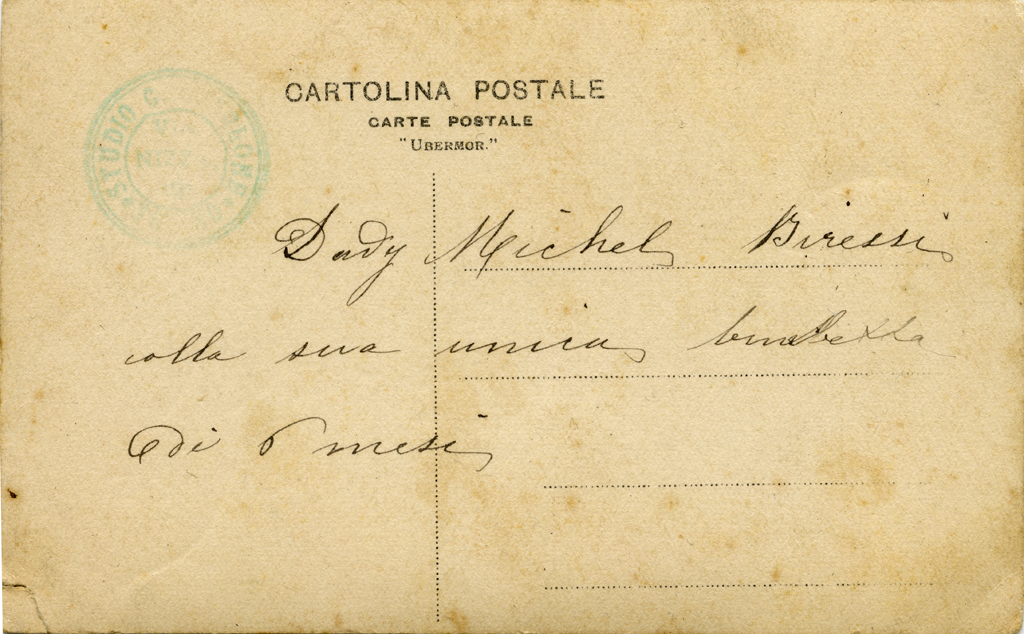 STUDIO C
CARTOLINA POSTALE
CARTE POSTALE
"UBERMOR."
Dady Michel Biressi
colla sua unica
di 6 mesi